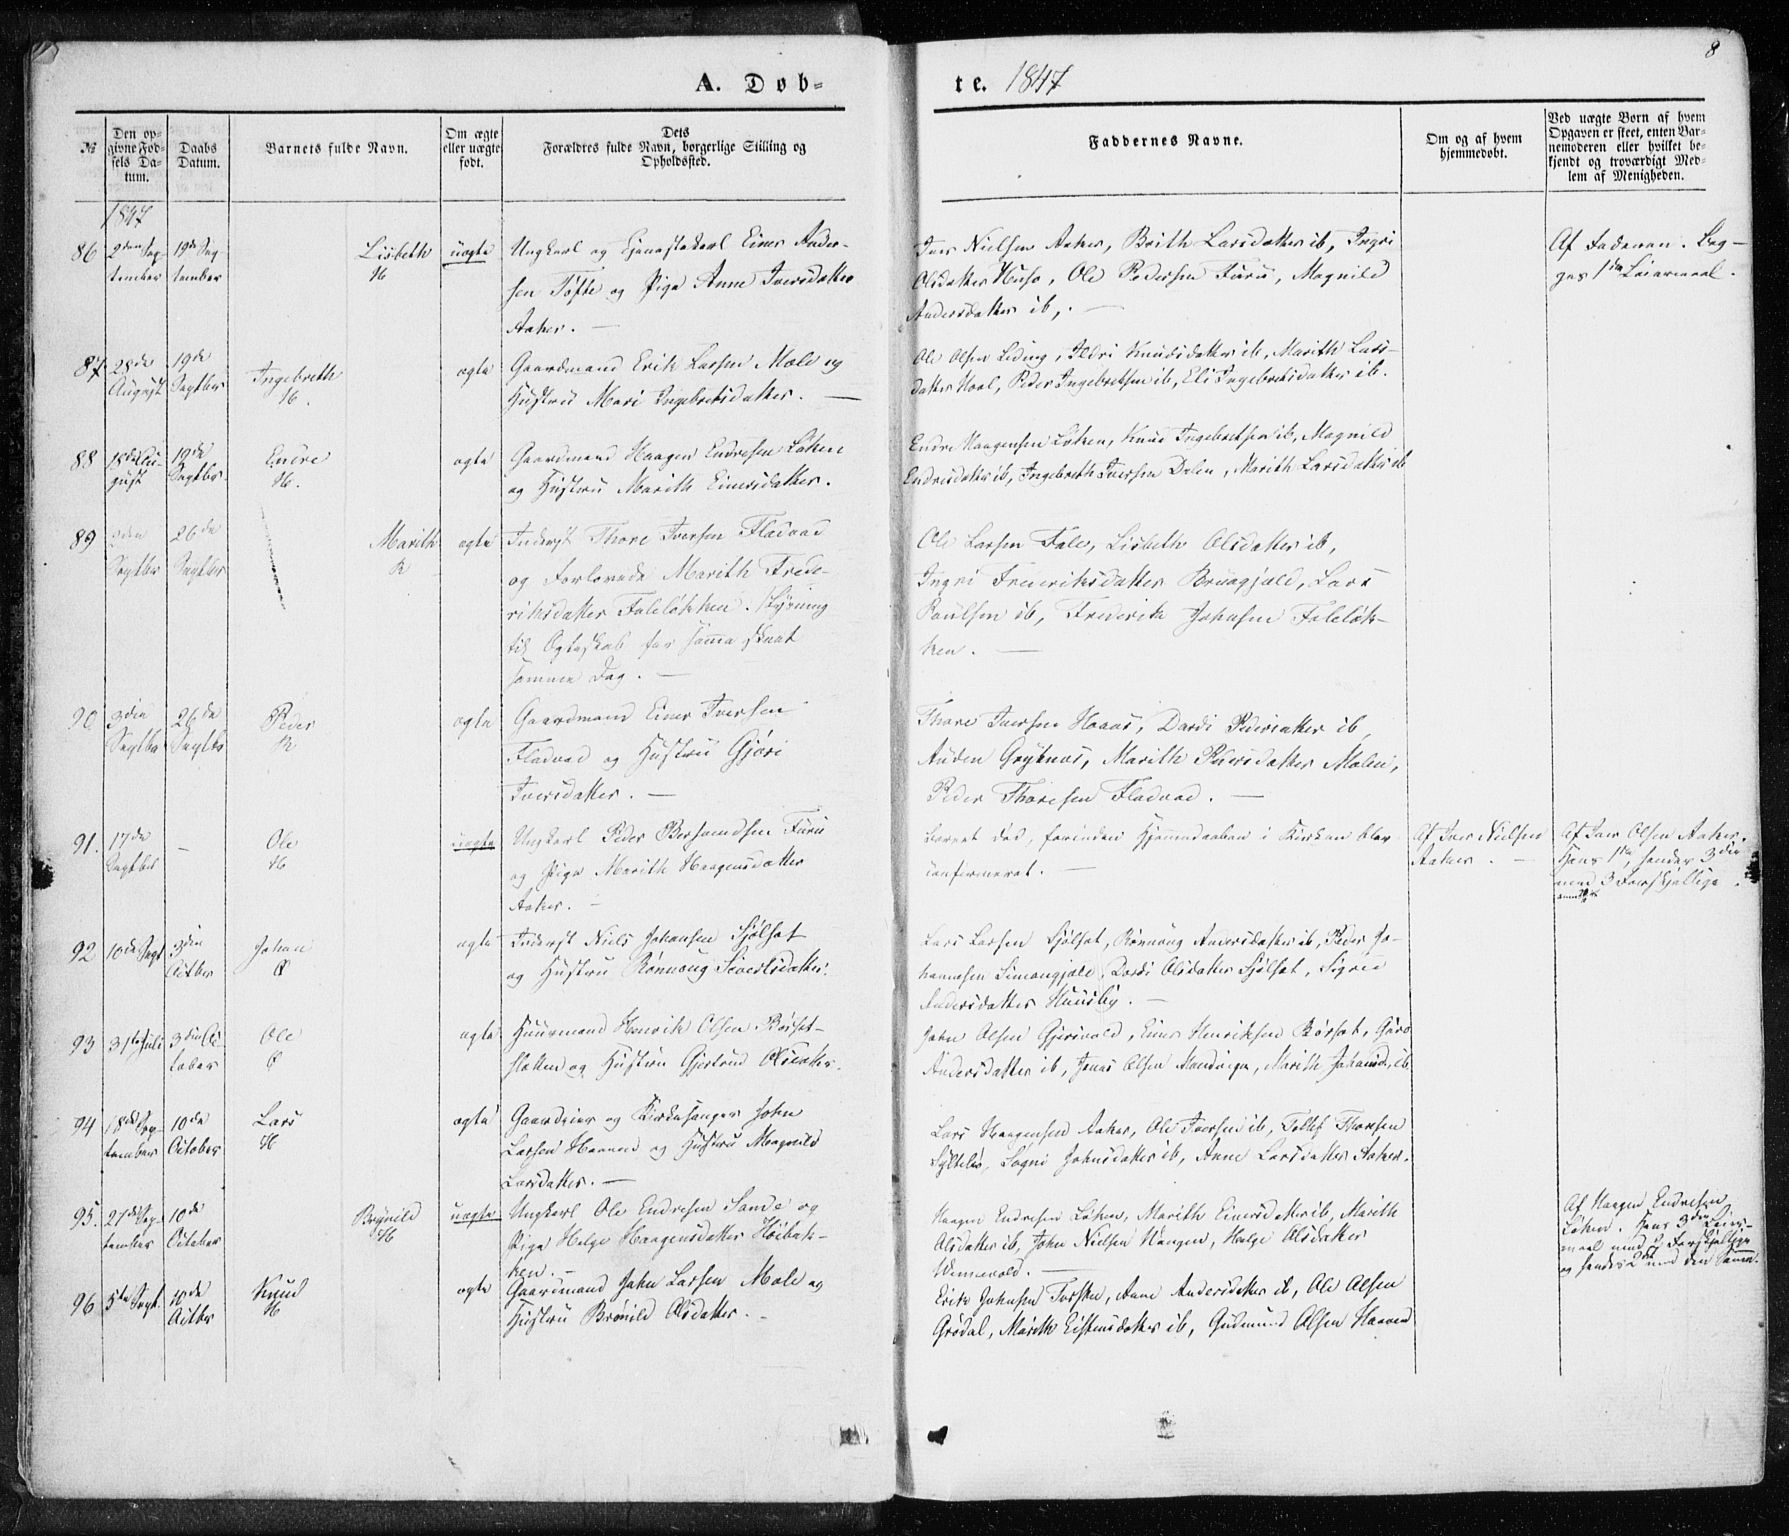 8
A. Døb-
te. 1847
№
Den op-
givne Fød-
sels Da-
tum.
Daabs
Datum.
Barnets fulde Navn.
Om ægte
eller uægte
født.
Dets
Forældres fulde Navn, borgerlige Stilling og
Opholdssted.
Faddernes Navne.
Om og af hvem
hjemmedøbt.
Ved uægte Børn af hvem
Opgaven er skeet, enten Bar-
nemoderen eller hvilket be-
kjendt og troværdigt Med-
lem af Menigheden.
1847
86 2den Sep-
tember
19de Sep-
tember
Lisbeth
H
uægte
Ungkarl og Tjenestekarl Einer Ander-
sen Tofte og Pige Anne Iversdatter
Aaker. —
Iver Nielsen Aaker, Brith Larsdatter ib, Ingri
Olsdatter Huso, Ole Pedersen Furu, Magnild
Andersdatter ib, . —
Af Faderen. Beg-
ges 1ste Leiermaal.
87. 28de
August
19de
Septbr
Ingebreth
H.
ægte
Gaardmand Erik Larsen Mæle og
Hustru Mari Ingebretsdatter. —
Ole Olsen Leding, Ildri Knudsdatter ib, Marith Lars-
datter Hoel, Peder Ingebretsen ib, Eli Ingebretsdatter ib.
88 18de Au-
gust
19de
Septbr
Endre
H.
ægte
Gaardmand Haagen Endresen Løken
og Hustru Marith Einersdatter.
Endre Haagensen Løken, Knud Ingebretsen ib, Magnild
Endresdatter ib, Ingebreth Iversen Dalen, Marith Larsdatter ib
89 3die
Septbr
26de
Septbr
Marith
R
ægte
Inderst Thore Iversen Fladvad
og Forlovede Marith Frede-
riksdatter Faleløkken. Lysning
til Ægteskab for samme skeet
samme Dag. —
Ole Larsen Fale, Lisbeth Olsdatter ib,
Ingri Frederiksdatter Bruagjeld, Lars
Paulsen ib, Frederik Johnsen Faleløk-
ken. —
90 3die
Septbr
26de
Septbr
Peder
R
ægte
Gaardmand Einer Iversen
Fladvad og Hustru Gjøri
Iversdatter. —
Thore Iversen Haaes, Dordi Pedersdatter ib,
Auden Grytnes, Marith Pedersdatter Molen,
Peder Thoresen Fladvad. —
91. 17de
Septbr
—
Ole
H
uægte
Ungkarl Peder Bersvendsen Furu
og Pige Marith Haagensdatter
Aaker. —
Barnet død, forinden Hjemmedaaben i Kirken blev
confirmeret. —
Af Iver Nielsen
Aaker. —
Af Iver Olsen Aaker.
Hans 1ste, hendes 3die
med 3 Forskjellige
92 10de Sept
3die
Octbr
Johan
Ø
ægte
Inderst Niels Johansen Sjølset
og Hustru Rønnoug Sivertsdatter.
Lars Larsen Sjølset, Rønnoug Andersdatter ib, Peder Jo-
hannesen Simongjele, Dordi Olsdatter Sjølset, Sigrid
Andersdatter Huusby. —
93 31te Juli
3die Oc-
tober
Ole
Ø
ægte
Huusmand Henrik Olsen Børset-
sletten og Hustru Gjertrud Olsdatter.
John Olsen Gjerivold, Einer Henriksen Børset, Guro
Andersdatter ib, Jonas Olsen, Marith Johansd. ib
94 18de Sep-
tember
10de
October
Lars
H
ægte
Gaardeier og Kirkesanger John
Larsen Haaven og Hustru Magnild
Larsdatter. —
Lars Haagensen Aaker, Ole Iversen ib, Tollef Thoresen
Syltebø, Sigri Johnsdatter ib, Anne Larsdatter Aaker.
95. 27de Sep-
tember
10de
October
Brynild
H
uægte
Ungkarl Ole Endresen Sande og
Pige Helge Haagensdatter Høibak-
ken. —
Haagen Endresen Løken, Marith Einersdatter ib, Marith
Olsdatter ib, John Nielsen Vangen, Helge Olsdatter
Vennevold. —
Af Haagen Endresen
Løken. Hans 3die Leier-
maal med 2 Forskjellige
og hendes 2det med den Samme.
96 5te Sept.
10de
Octbr
Knud
H
ægte
Gaardmand John Larsen Mæle og
Hustru Brønild Olsdatter. —
Erik Johnsen Torske, Anne Andersdatter ib, Ole Olsen
Grødal, Marith Eistensdatter ib, Gudmund Olsen Haaven